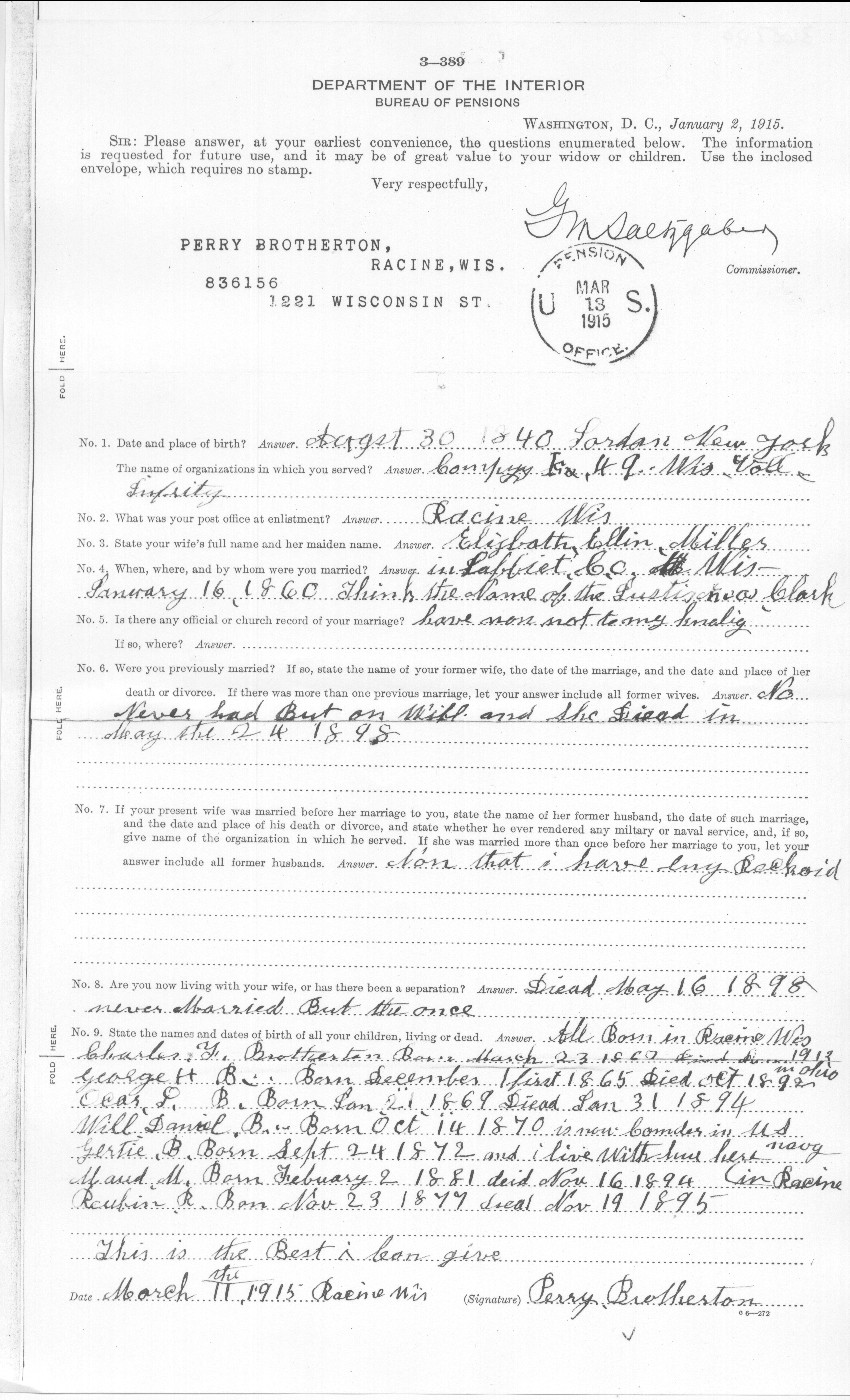 3—389
DEPARTMENT OF THE INTERIOR
BUREAU OF PENSIONS
WASHINGTON, D. C., January 2, 1915.
SIR: Please answer, at your earliest convenience, the questions enumerated below. The information
is requested for future use, and it may be of great value to your widow or children. Use the inclosed
envelope, which requires no stamp.
Very respectfully,
G M Saltzgaber
Commissioner.
PERRY BROTHERTON,
RACINE, WIS.
836156
1221 WISCONSIN ST.
PENSION
MAR
U 13 S.
1915
OFFICE.
FOLD HERE.
No. 1. Date and place of birth? Answer. Augst 30 1840 Jordan New York
The name of organizations in which you served? Answer. Wis
No. 2. What was your post office at enlistment? Answer. Racine Wis
No. 3. State your wife's full name and her maiden name. Answer. Elizbath Ellin Miller
No. 4. When, where, and by whom were you married? Answer. in Co. Wis
January 16, 1860 Think the Name of the was Clark
No. 5. Is there any official or church record of your marriage? have non not to my knalig
If so, where? Answer.
No. 6. Were you previously married? If so, state the name of your former wife, the date of the marriage, and the date and place of her
death or divorce. If there was more than one previous marriage, let your answer include all former wives. Answer. No
FOLD HERE.
Never had But on Wife and she Diead in
May the 24 1898
No. 7. If your present wife was married before her marriage to you, state the name of her former husband, the date of such marriage,
and the date and place of his death or divorce, and state whether he ever rendered any military or naval service, and, if so,
give name of the organization in which he served. If she was married more than once before her marriage to you, let your
answer include all former husbands. Answer. Non that i have eny
No. 8. Are you now living with your wife, or has there been a separation? Answer. Diead May 16 1898
never Married But the once
No. 9. State the names and dates of birth of all your children, living or dead. Answer. All Born in Racine Wis
FOLD HERE.
Charles F. Brotherton Born March 23 1913
in Ohio
George H B. Born December first 1865 Died Oct 1892
Oscar L. B. Born Jan 21 1869 Diead Jan 31 1894
Will Daniel B. Born Oct 14 1870 is now in U S
navy
Gertie B. Born Sept 24 1872 and i live With here
in Racine
Maud M. Born Febuary 2 1881 deid Nov 16 1894
Reubin R. Born Nov 23 1877 Nov 19 1895
This is the Best i can give
Date March 11 the, 1915 Racine Wis (Signature) Perry Brotherton
6—272